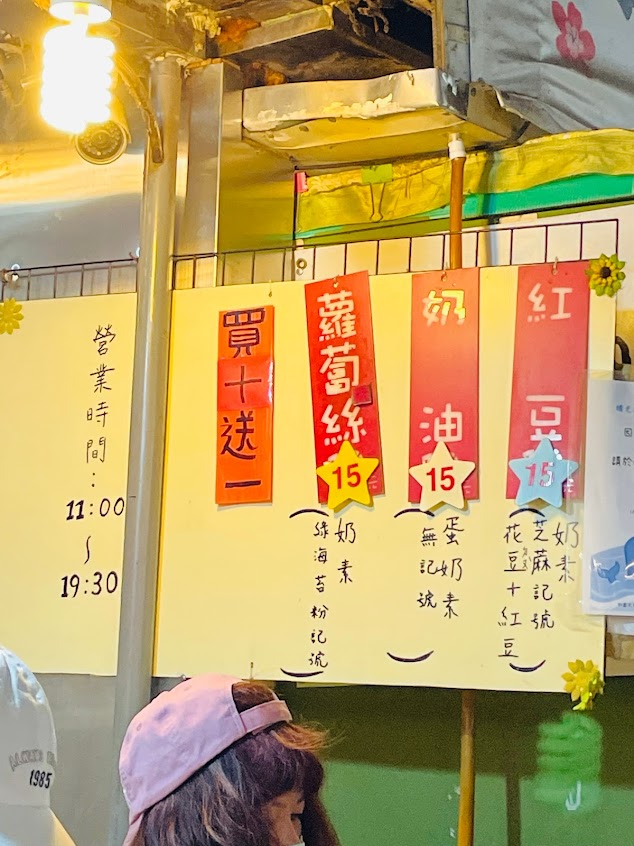 紅豆
15
奶素
芝麻記號
花豆+紅豆
奶油
15
蛋奶素
無記號
蘿蔔絲
15
奶素
綠海苔粉記號
買十送一
營業時間:
11:00
~
19:30
1985